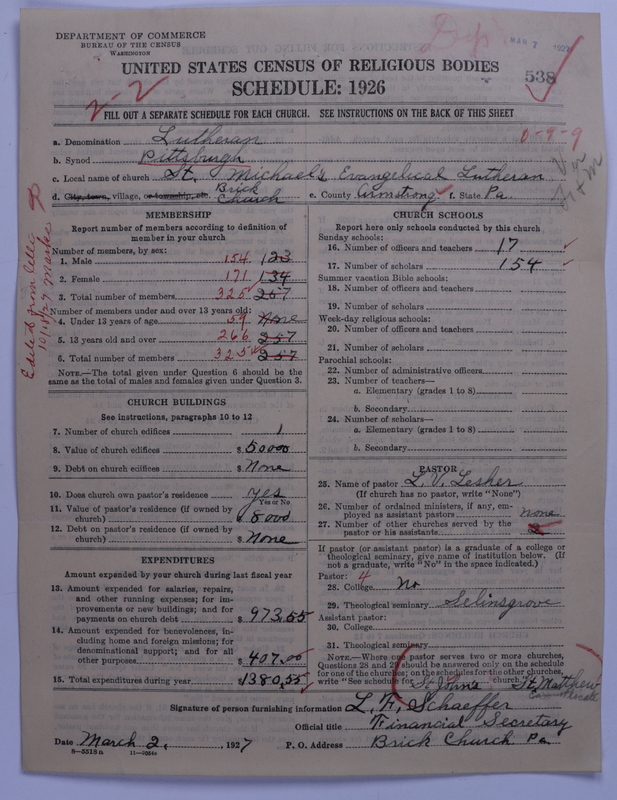 DEPARTMENT OF COMMERCE
BUREAU OF THE CENSUS
WASHINGTON
MAR 7 1927
UNITED STATES CENSUS OF RELIGIOUS BODIES
SCHEDULE: 1926
538
2-2
FILL OUT A SEPARATE SCHEDULE FOR EACH CHURCH. SEE INSTRUCTIONS ON THE BACK OF THIS SHEET
a. Denomination Lutheran
0-9-9
b. Synod Pittsburgh
c. Local name of church St. Michael's Evangelical Lutheran
d. City, town, village, or township, etc. Brick Church e. County Armstrong f. State Pa.
MEMBERSHIP
Report number of members according to definition of member in your church
Number of members, by sex:
1. Male 154 123
2. Female 171 134
3. Total number of members 325 257
Number of members under and over 13 years old:
4. Under 13 years of age 59 None
5. 13 years old and over 266 257
6. Total number of members 325 257
NOTE.—The total given under Question 6 should be
same as the total of males and females given under Question 3.
CHURCH BUILDINGS
See instructions, paragraphs 10 to 12
7. Number of church edifices 1
8. Value of church edifices $ 50000
9. Debt on church edifices $ None
10. Does church own pastor's residence yes
Yes or No
11. Value of pastor's residence (if owned by
church) $ 8000
12. Debt on pastor's residence (if owned by
church) $ None
EXPENDITURES
Amount expended by your church during last fiscal year
13. Amount expended for salaries, repairs,
and other running expenses; for im-
provements or new buildings; and for
payments on church debt $ 973.55
14. Amount expended for benevolences, in-
cluding home and foreign missions; for
denominational support; and for all
other purposes $ 407.00
15. Total expenditures during year $ 1380.55
CHURCH SCHOOLS
Report here only schools conducted by this church
Sunday schools:
16. Number of officers and teachers 17
17. Number of scholars 154
Summer vacation Bible schools:
18. Number of officers and teachers
19. Number of scholars
Week-day religious schools:
20. Number of officers and teachers
21. Number of scholars
Parochial schools:
22. Number of administrative officers
23. Number of teachers—
a. Elementary (grades 1 to 8)
b. Secondary
24. Number of scholars—
a. Elementary (grades 1 to 8)
b. Secondary
PASTOR
25. Name of pastor L. V. Lesher
(If church has no pastor, write "None")
26. Number of ordained ministers, if any, em-
ployed as assistant pastors none
27. Number of other churches served by the
pastor or his assistants 2
If pastor (or assistant pastor) is a graduate of a college or
theological seminary, give name of institution below. (If
not a graduate, write "No" in the space indicated.)
Pastor: 4
28. College No
29. Theological seminary Selinsgrove
Assistant pastor:
30. College
31. Theological seminary
NOTE.—Where one pastor serves two or more churches,
Questions 28 and 29 should be answered only on the schedule
for one of the churches; on the schedules for the other churches,
write "See schedule for St Johns church" St. Matthew
Signature of person furnishing information L. F. Schaeffer
Official title Financial Secretary
Date March 2, 1927 P. O. Address Brick Church Pa.
8-5518 a 11-9054a